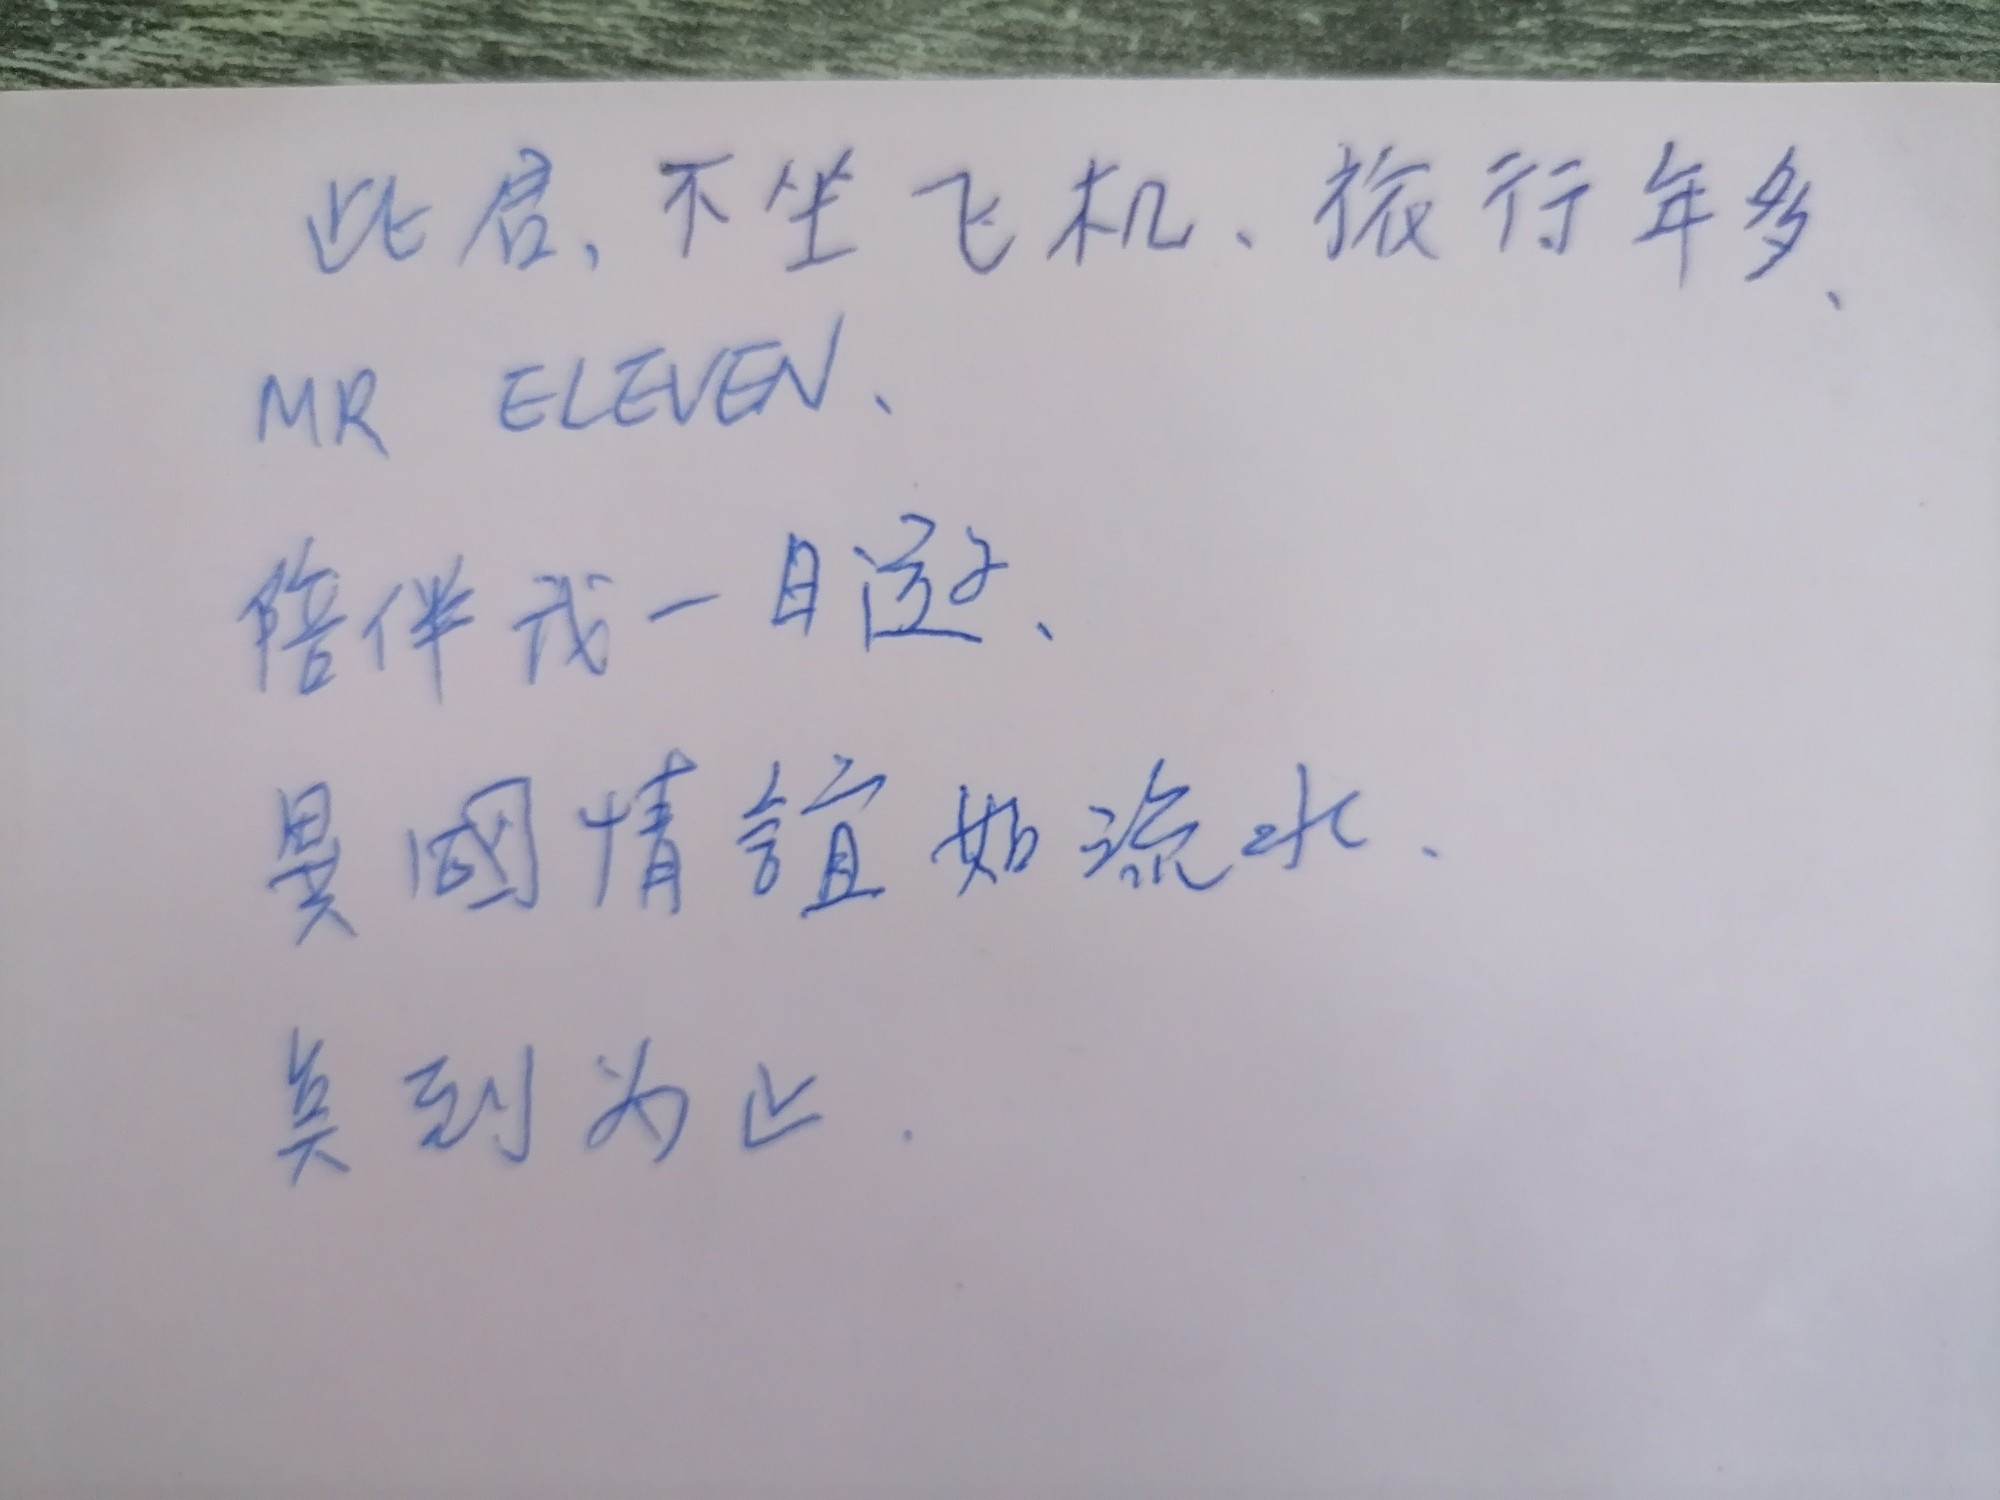 此君、不坐飞机、旅行年多、
MR ELEVEN、
陪伴我一日遊、
異國情誼如流水、
点到为止.